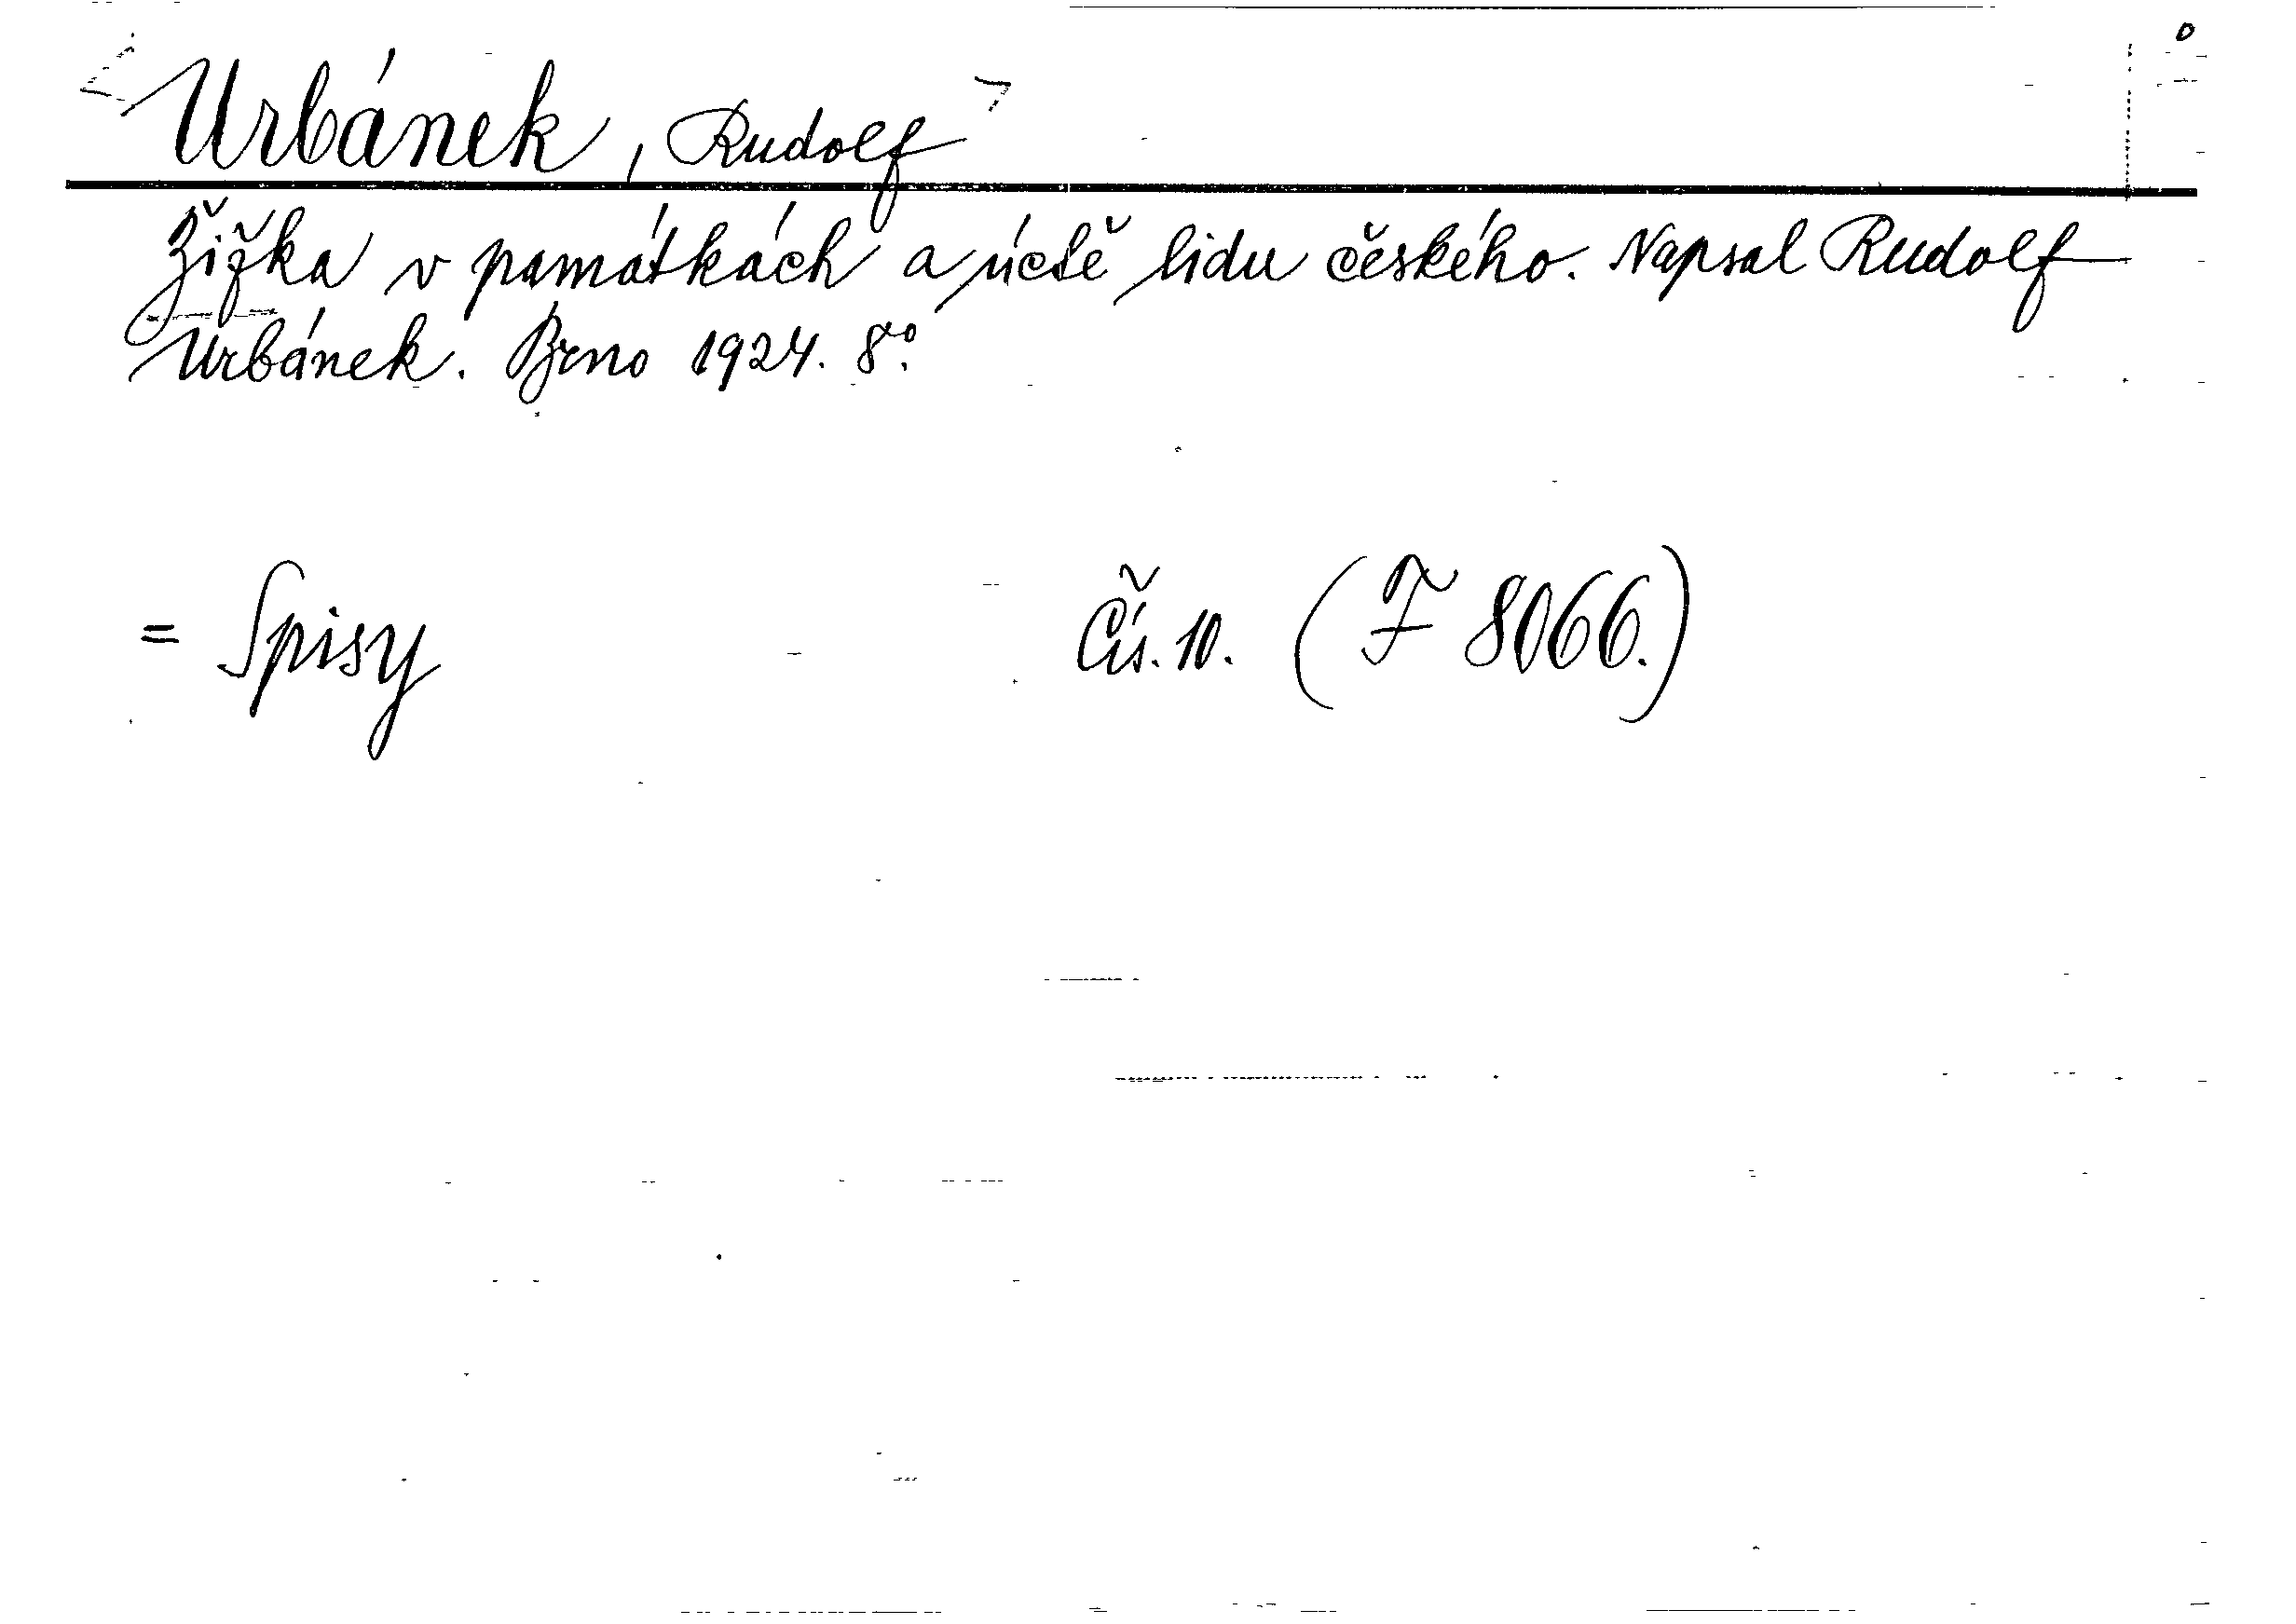 Urbánek, Rudolf
Žižka v památkách a úctě lidu českého. Napsal Rudolf
Urbánek. Brno 1924. 8°.
= Spisy Čís. 10. (F 8066.)